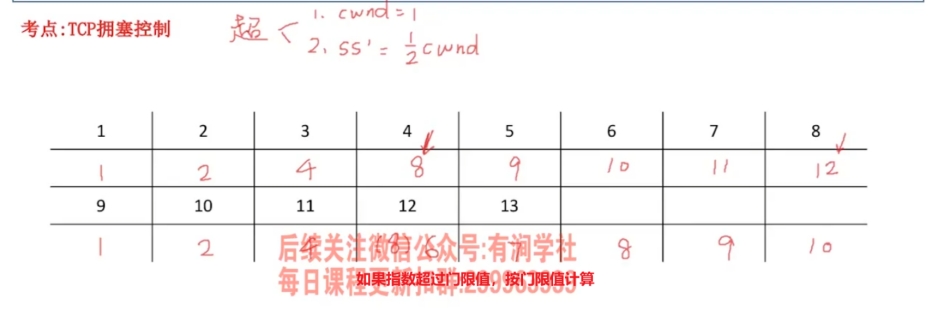 考点:TCP拥塞控制
超<
1. cwnd=1
2. ss'=½cwnd
1 2 3 4 5 6 7 8
1 2 4 8 9 10 11 12
9 10 11 12 13
1 2 4 (8) 6 7 8 9 10
后续关注微信公众号:有润学社
每日课程更新扣群:
如果指数超过门限值，按门限值计算